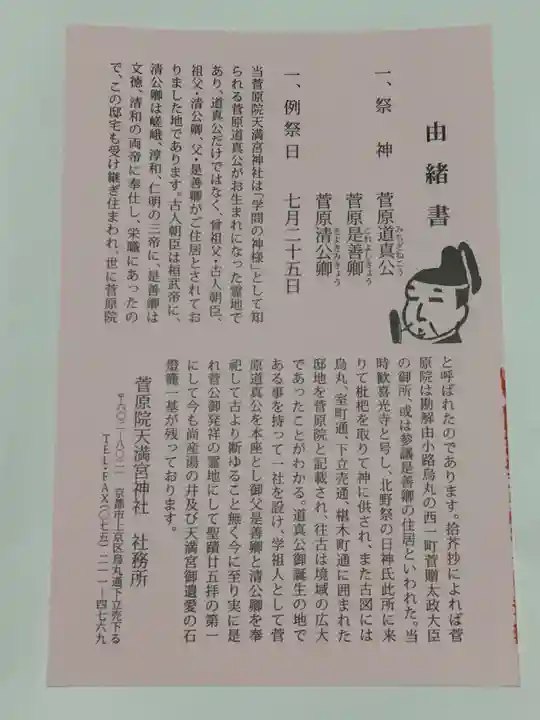 由緒書
一、祭　神　菅原道真公
みちざねこう
菅原是善卿
これよしきょう
菅原清公卿
きよきみきょう
一、例祭日　七月二十五日
当菅原院天満宮神社は「学問の神様」として知
られる菅原道真公がお生まれになった霊地で
あり、道真公だけではなく、曾祖父・古人朝臣、
祖父・清公卿、父・是善卿がご住居とされてお
りました地であります。古人朝臣は桓武帝に、
清公卿は嵯峨、淳和、仁明の三帝に、是善卿は
文徳、清和の両帝に奉仕し、栄職にあったの
で、この邸宅も受け継ぎ住まわれ、世に菅原院
と呼ばれたのであります。拾芥抄によれば菅
原院は勘解由小路烏丸の西一町菅贈太政大臣
の御所、或は参議是善卿の住居といわれた。当
時歓喜光寺と号し、北野祭の日神氏此所に来
りて枇杷を取りて神に供され、また古図には
烏丸、室町通、下立売通、椹木町通に囲まれた
邸地を菅原院と記載され、往古は境域の広大
であったことがわかる。道真公御誕生の地で
ある事を持って一社を設け、学祖人として菅
原道真公を本座とし御父是善卿と清公卿を奉
祀して古より断ゆること無く今に至り実に是
れ菅公御発祥の霊地にして聖蹟廿五拝の第一
にして今も尚産湯の井及び天満宮御遺愛の石
燈籠一基が残っております。
菅原院天満宮神社　社務所
〒六〇二－八〇二一　京都市上京区烏丸通下立売下る
TEL・FAX(〇七五)二一一－四七六九